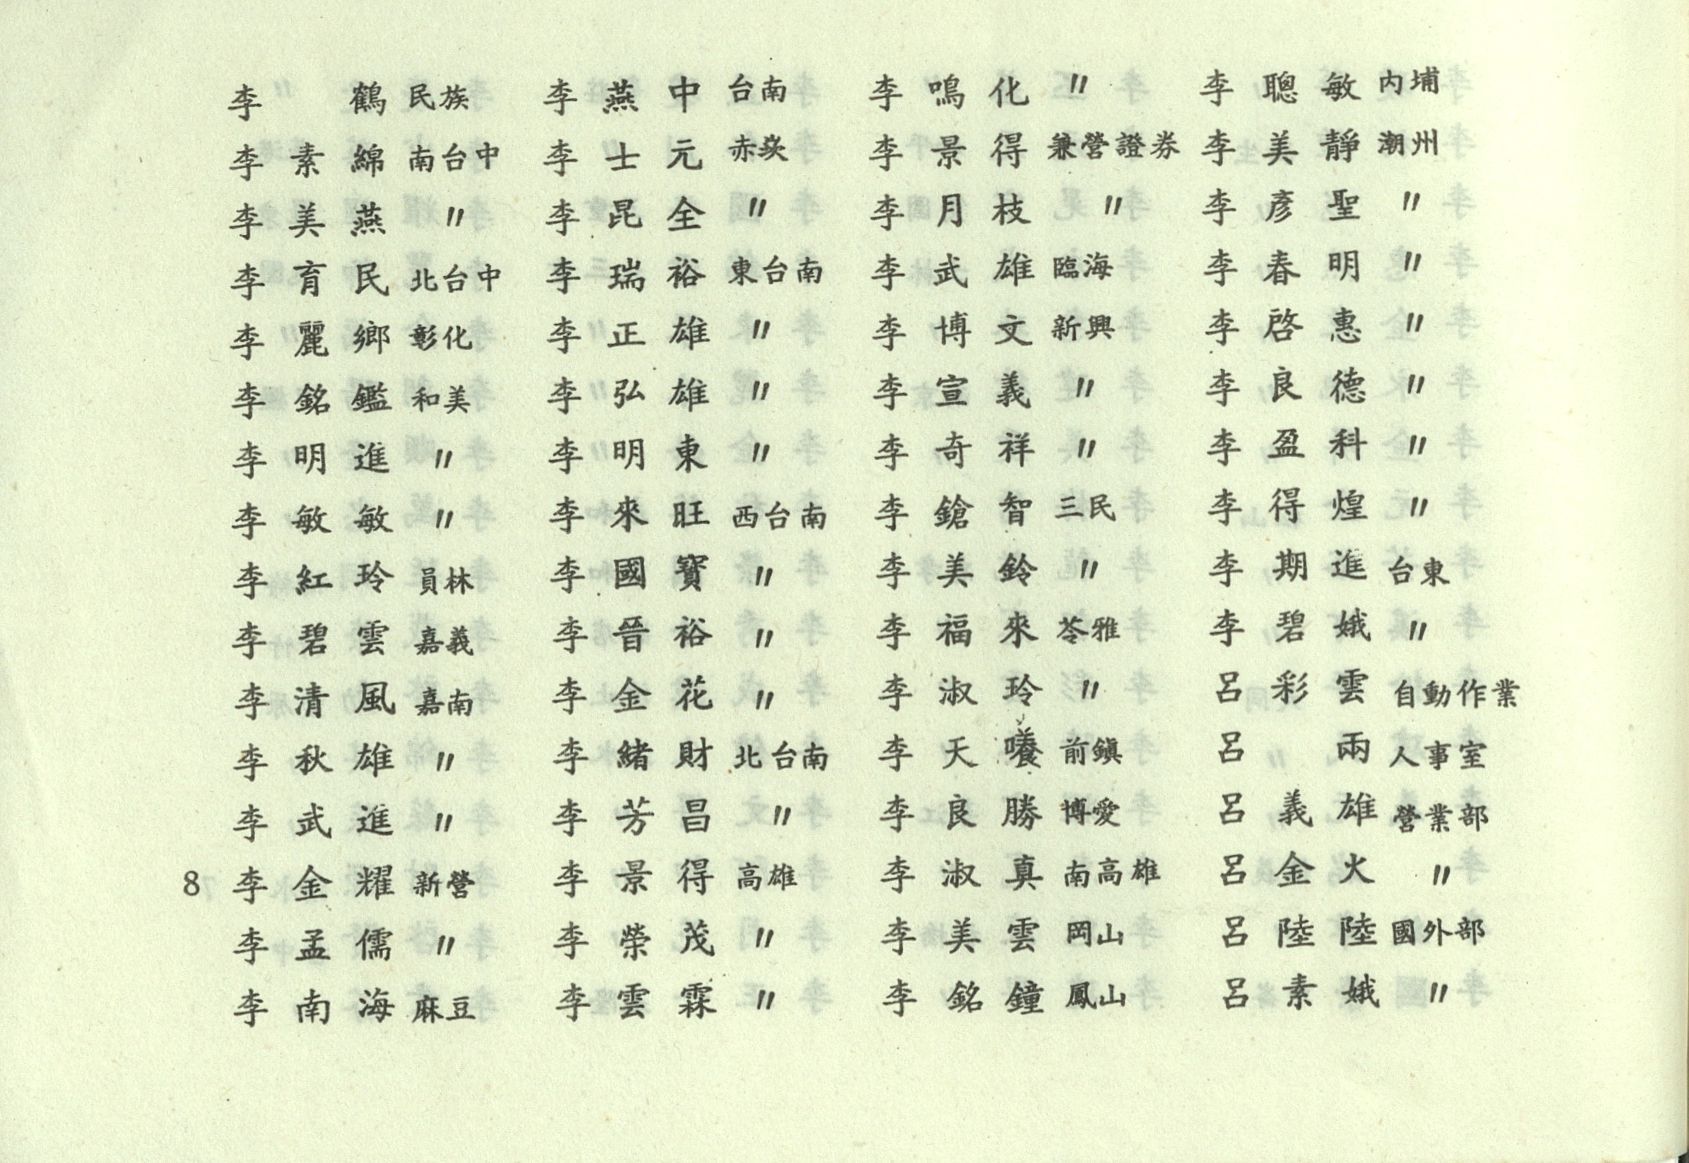 李　鶴 民族
李素綿 南台中
李美燕 〃
李育民 北台中
李麗鄉 彰化
李銘鑑 和美
李明進 〃
李敏敏 〃
李紅玲 員林
李碧雲 嘉義
李清風 嘉南
李秋雄 〃
李武進 〃
李金耀 新營
李孟儒 〃
李南海 麻豆
李燕中 台南
李士元 赤崁
李昆全 〃
李瑞裕 東台南
李正雄 〃
李弘雄 〃
李明東 〃
李來旺 西台南
李國寶 〃
李晉裕 〃
李金花 〃
李緒財 北台南
李芳昌 〃
李景得 高雄
李榮茂 〃
李雲霖 〃
李鳴化 〃
李景得 兼營證券
李月枝 〃
李武雄 臨海
李博文 新興
李宣義 〃
李奇祥 〃
李鎗智 三民
李美鈴 〃
李福來 苓雅
李淑玲 〃
李天 前鎮
李良勝 博愛
李淑真 南高雄
李美雲 岡山
李銘鐘 鳳山
李聰敏 內埔
李美靜 潮州
李彦聖 〃
李春明 〃
李啓惠 〃
李良德 〃
李盈科 〃
李得煌 〃
李期進 台東
李碧娥 〃
呂彩雲 自動作業
呂　兩 人事室
呂義雄 營業部
呂金火 〃
呂陸陸 國外部
呂素娥 〃
8